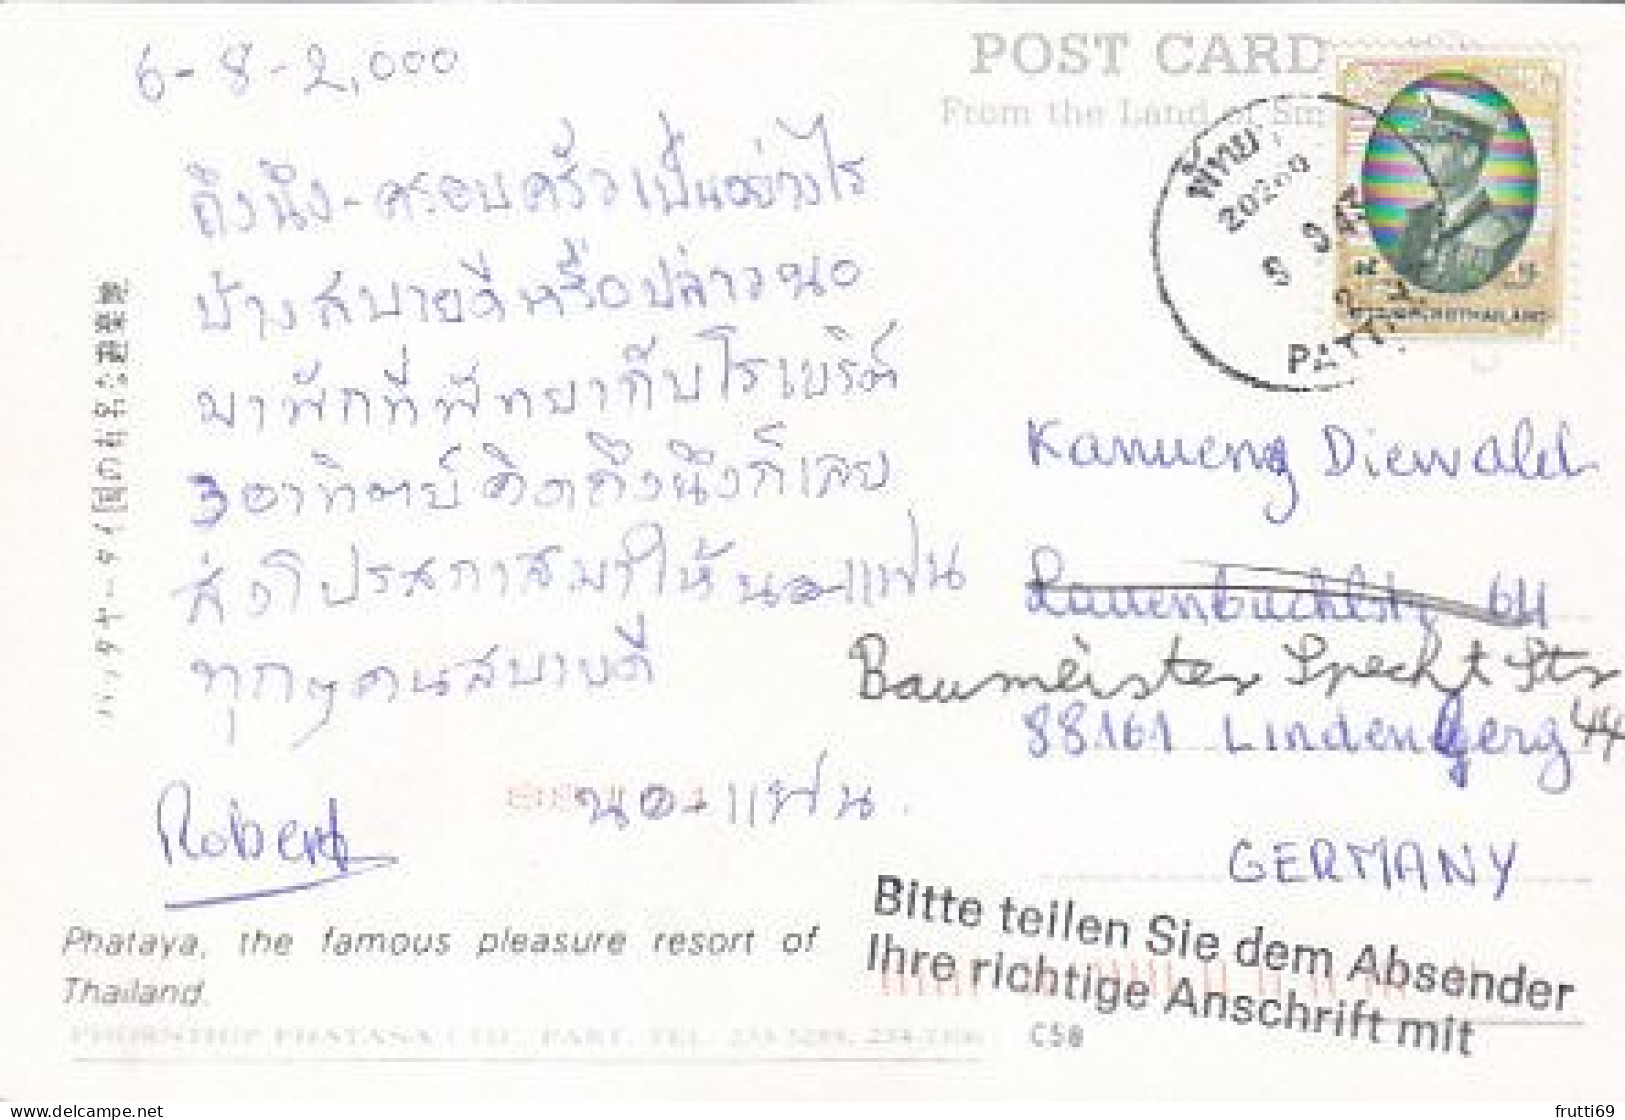 6-8-2,000
POST CARD
From the Land of Smi
ถึงนึง-ครอบครัวเป็นอย่างไร
บ้างสบายดีหรือเปล่าวนอ
มาพักที่พัทยากับโรเบริต์
3อาทิตย์คิดถึงนึงก็เลย
ส่งโปรสกาสมาให้นอ-แฟน
ทุกๆคนสบายดี
นอ-แฟน.
Robert
พัทยา
20260
PATT
THAILAND
Kanueng Diewald
Lauenbuchlstr 64
Baumeister Specht Str
44
88161 Lindenberg
GERMANY
Bitte teilen Sie dem Absender
Ihre richtige Anschrift mit
Phataya, the famous pleasure resort of
Thailand.
PHORNTHEP PHATASA LTD. PART. TEL.
C58
パッタヤータイ国の有名な遊楽地
delcampe.net
frutti69